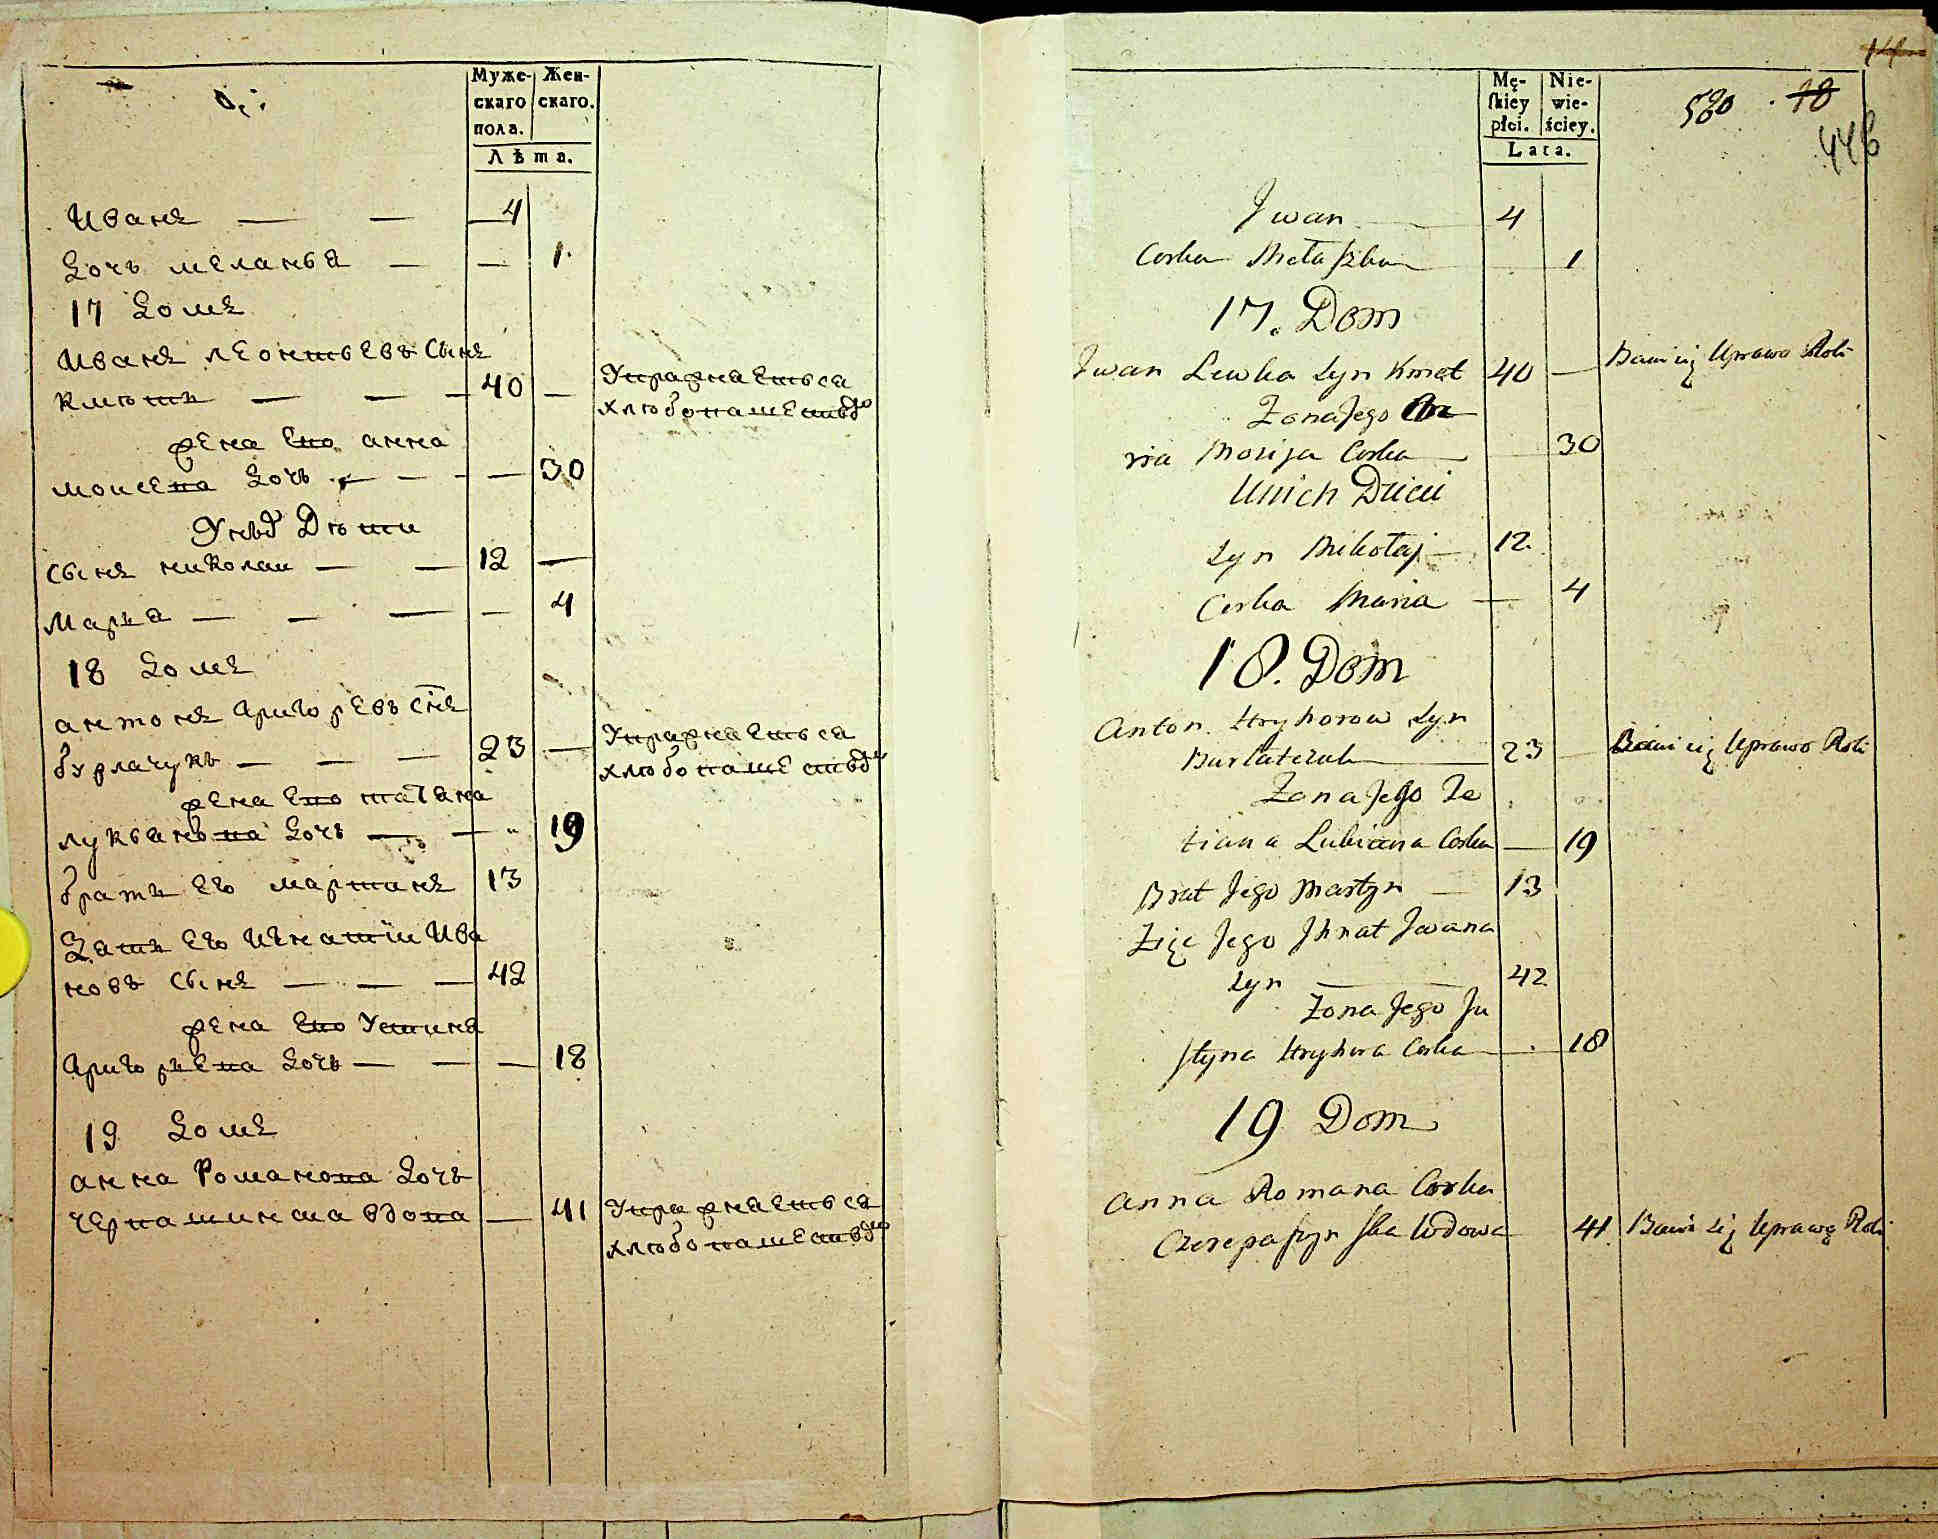 Муже-
скаго
пола.
Жен-
скаго.
Лѣта.
Иванъ — — — 4
Дочь меланья — — 1.
17 Домъ
Иванъ леонтьевъ Сынъ
Кметь — — — 40 — Упражнаеться
хлѣбопашествомъ
жена Его анна
моисева Дочь — — — — 30
У нихъ Дѣти
Сынъ николай — — 12 —
Марья — — — — 4
18 Домъ
антонъ григоревъ Снъ
бурлачукъ — — — 23 — Упражнаеться
хлѣбопашествомъ
жена Его татяна
лукьянова Дочь — — 19
братъ Его мартинъ 13
Зять Его Игнатій Ива
новъ Сынъ — — — 42
жена Его Устина
григорьева Дочь — — — 18
19 Домъ
анна Романова Дочь
черпашинска вдова — 41 Упражнаеться
хлѣбопашествомъ
Mę-
skiey
płci.
Nie-
wie-
ściey.
Lata.
580 . 18
446
Jwan 4
Corka Mełaszka 1
17. Dom
Jwan Lewka Syn Kmet 40 — Bawi się Uprawą Roli
Zona Jego An
na Mosija Corka 30
U nich Dzieci
Syn Mikołaj — 12
Corka Maria — 4
18. Dom
Anton Hryhorow Syn
Burłaczuk 23 — Bawi się Uprawo Roli
Zona Jego Te
tiana Lukiana Corka — 19
Brat Jego Martyn — 13
Zięc Jego Jhnat Jwana
Syn 42
Zona Jego Ju
styna Hryhora Corka 18
19 Dom
Anna Romana Corka
Czerepaszynska Wdowa 41 Bawi się Uprawą Roli